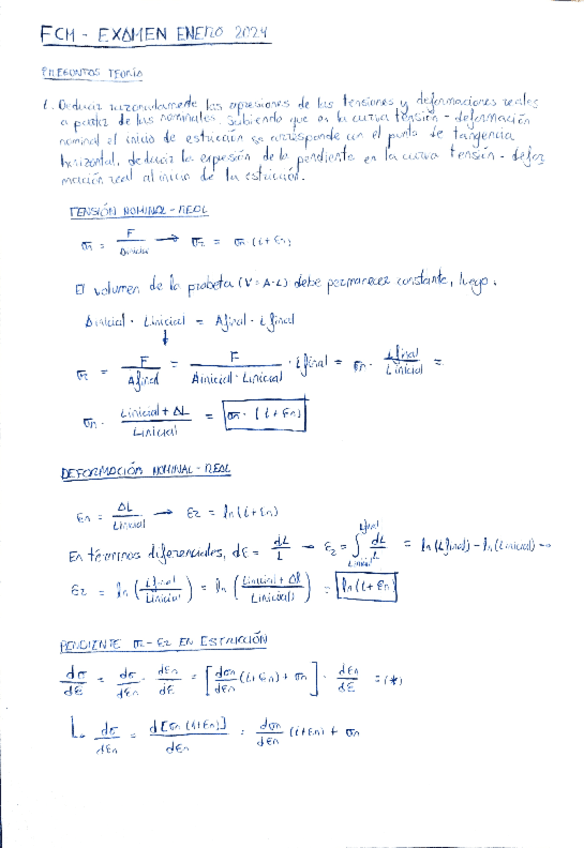 FCM - EXAMEN ENERO 2024
PREGUNTAS TEORÍA
1. Deducir razonadamente las expresiones de las tensiones y deformaciones reales
a partir de las nominales. Sabiendo que en la curva tensión - deformación
nominal el inicio de estricción se corresponde con el punto de tangencia
horizontal, deducir la expresión de la pendiente en la curva tensión - defor
mación real al inicio de la estricción.
TENSIÓN NOMINAL - REAL
σn = F / Ainicial → σr = σn (1+εn)
El volumen de la probeta (V = A·L) debe permanecer constante, luego.
Ainicial · Linicial = Afinal · Lfinal
↓
σr = F / Afinal = F / (Ainicial · Linicial) · Lfinal = σn · Lfinal / Linicial =
σn · (Linicial + ΔL) / Linicial = σn · (1+εn)
DEFORMACIÓN NOMINAL - REAL
εn = ΔL / Linicial → εr = ln(1+εn)
En términos diferenciales, dε = dL / L → εr = ∫ Linicial Lfinal dL / L = ln(Lfinal) - ln(Linicial) →
εr = ln (Lfinal / Linicial) = ln ((Linicial + Δl) / Linicial) = ln(1+εn)
PENDIENTE σr - εr EN ESTRICCIÓN
dσ / dε = dσ / dεn · dεn / dε = [dσn / dεn (1+εn) + σn] · dεn / dε = (*)
dσ / dεn = d[σn (1+εn)] / dεn = dσn / dεn (1+εn) + σn